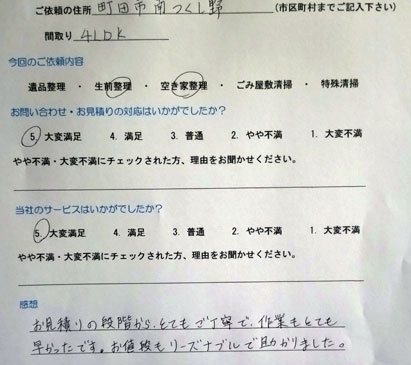 ご依頼の住所 町田市南つくし野 (市区町村までご記入下さい)
間取り 4LDK
今回のご依頼内容
遺品整理 ・ 生前整理 ・ 空き家整理 ・ ごみ屋敷清掃 ・ 特殊清掃
お問い合わせ・お見積りの対応はいかがでしたか?
5. 大変満足 4. 満足 3. 普通 2. やや不満 1. 大変不満
やや不満・大変不満にチェックされた方、理由をお聞かせください。
当社のサービスはいかがでしたか?
5. 大変満足 4. 満足 3. 普通 2. やや不満 1. 大変不満
やや不満・大変不満にチェックされた方、理由をお聞かせください。
感想
お見積りの段階から、とてもご丁寧で、作業もとても
早かったです。お値段もリーズナブルで助かりました。